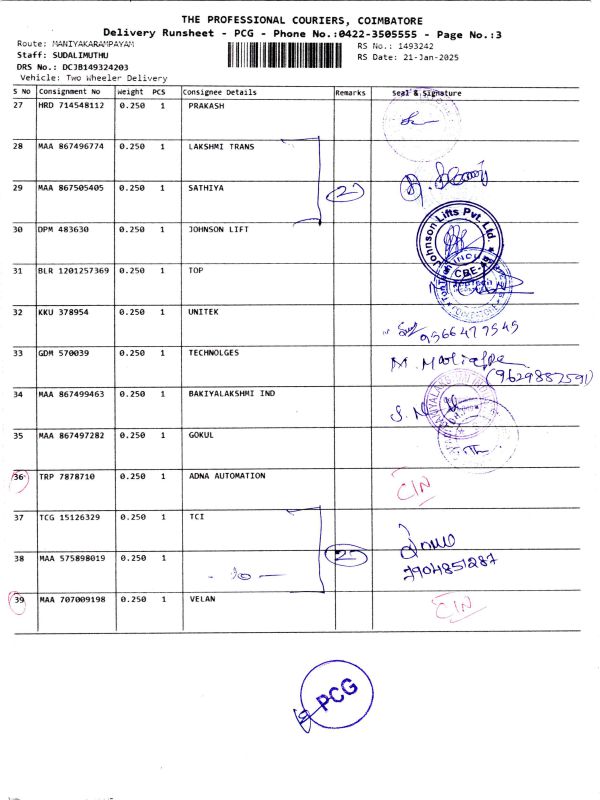 THE PROFESSIONAL COURIERS, COIMBATORE
Delivery Runsheet - PCG - Phone No.:0422-3505555 - Page No.:3
Route: MANIYAKARAMPAYAM
RS No.: 1493242
Staff: SUDALIMUTHU
RS Date: 21-Jan-2025
DRS No.: DCJB149324203
Vehicle: Two Wheeler Delivery
S No Consignment No Weight PCS Consignee Details Remarks Seal & Signature
27 HRD 714548112 0.250 1 PRAKASH
28 MAA 867496774 1 LAKSHMI TRANS
29 MAA 867505405 0.250 1 SATHIYA 2
30 DPM 483630 0.250 1 JOHNSON LIFT
Johnson Lifts Pvt. Ltd.
CBE
31 BLR 1201257369 0.250 1 TOP
32 KKU 378954 0.250 1 UNITEK
9566477545
33 GDM 570039 0.250 1 TECHNOLGES
(9629887591)
34 MAA 867499463 0.250 1 BAKIYALAKSHMI IND
S. N
35 MAA 867497282 0.250 1 GOKUL
36 TRP 7878710 0.250 1 ADNA AUTOMATION CIN
37 TCG 15126329 0.250 1 TCI
38 MAA 575898019 0.250 1 2
7904851287
39 MAA 707009198 0.250 1 VELAN CIN
PCG